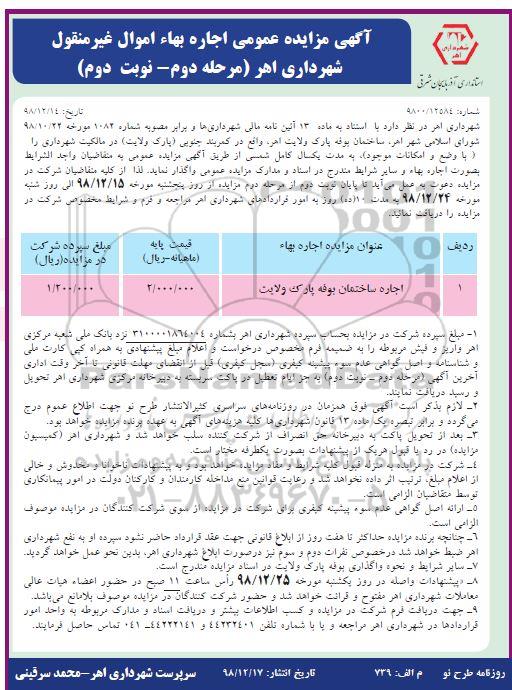 شهرداری اهر
استانداری آذربایجان شرقی
آگهی مزایده عمومی اجاره بهاء اموال غیرمنقول
شهرداری اهر (مرحله دوم- نوبت دوم)
شماره: ۹۸۰۰/۱۲۵۸۴
تاریخ: ۹۸/۱۲/۱۴
شهرداری اهر در نظر دارد با استناد به ماده ۱۳ آئین نامه مالی شهرداری‌ها و برابر مصوبه شماره ۱۰۸۲ مورخه ۹۸/۱۰/۲۲
شورای اسلامی شهر اهر، ساختمان بوفه پارک ولایت اهر، واقع در کمربند جنوبی (پارک ولایت) در مالکیت شهرداری را
( با وضع و امکانات موجود)، به مدت یکسال کامل شمسی از طریق آگهی مزایده عمومی به متقاضیان واجد الشرایط
بصورت اجاره بهاء و سایر شرایط مندرج در اسناد و مدارک مزایده عمومی واگذار نماید. لذا از کلیه متقاضیان شرکت در
مزایده دعوت به عمل می‌آید تا پایان نوبت دوم از مرحله دوم مزایده از روز پنجشنبه مورخه ۹۸/۱۲/۱۵ الی روز شنبه
مورخه ۹۸/۱۲/۲۴ به مدت ۱۰(ده) روز به امور قراردادهای شهرداری اهر مراجعه و فرم و شرایط مخصوص شرکت در
مزایده را دریافت نمائید.
ردیف
عنوان مزایده اجاره بهاء
قیمت پایه
(ماهیانه-ریال)
مبلغ سپرده شرکت
در مزایده(ریال)
۱
اجاره ساختمان بوفه پارک ولایت
۲/۰۰۰/۰۰۰
۱/۲۰۰/۰۰۰
۱- مبلغ سپرده شرکت در مزایده بحساب سپرده شهرداری اهر بشماره ۳۱۰۰۰۰۱۸۶۴۰۰۴ نزد بانک ملی شعبه مرکزی
اهر واریز و فیش مربوطه را به ضمیمه فرم مخصوص درخواست و اعلام مبلغ پیشنهادی به همراه کپی کارت ملی
و شناسنامه و اصل گواهی عدم سوء پیشینه کیفری (سجل کیفری) قبل از انقضای مهلت قانونی تا آخر وقت اداری
آخرین آگهی (مرحله دوم- نوبت دوم) به جز ایام تعطیل در پاکت سربسته به دبیرخانه مرکزی شهرداری اهر تحویل
و رسید دریافت نمایند.
۲- لازم بذکر است آگهی فوق همزمان در روزنامه‌های سراسری کثیرالانتشار طرح نو جهت اطلاع عموم درج
می‌گردد و برابر تبصره یک ماده ۱۳ قانون شهرداری‌ها کلیه هزینه‌های آگهی به عهده برنده مزایده خواهد بود.
۳- بعد از تحویل پاکت به دبیرخانه حق انصراف از شرکت کننده سلب خواهد شد و شهرداری اهر (کمیسیون
مزایده) در رد یا قبول هریک از پیشنهادات بصورت یکطرفه مختار است.
۴- شرکت در مزایده به منزله قبول کلیه شرایط و مفاد مزایده خواهد بود و به پیشنهادات ناخوانا و مخدوش و خالی
از اعلام مبلغ، ترتیب اثر داده نخواهد شد و رعایت قوانین منع مداخله کارمندان و کارکنان دولت در امور پیمانکاری
توسط متقاضیان الزامی است.
۵- ارائه اصل گواهی عدم سوء پیشینه کیفری برای شرکت در مزایده از سوی شرکت کنندگان در مزایده موصوف
الزامی است.
۶- چنانچه برنده مزایده حداکثر تا هفت روز از ابلاغ قانونی جهت عقد قرارداد حاضر نشود سپرده او به نفع شهرداری
اهر ضبط خواهد شد درخصوص نفرات دوم و سوم نیز درصورت ابلاغ شهرداری اهر، بدین نحو عمل خواهد گردید.
۷- سایر شرایط و نحوه واگذاری بوفه پارک ولایت در اسناد مزایده مندرج است.
۸- پیشنهادات واصله در روز یکشنبه مورخه ۹۸/۱۲/۲۵ رأس ساعت ۱۱ صبح در حضور اعضاء هیات عالی
معاملات شهرداری اهر مفتوح و قرائت خواهد شد و حضور شرکت کنندگان در مزایده موصوف بلامانع می‌باشد.
۹- جهت دریافت فرم شرکت در مزایده و کسب اطلاعات بیشتر و دریافت اسناد و مدارک مربوطه به واحد امور
قراردادها در شهرداری اهر مراجعه و یا با شماره تلفن ۴۴۲۳۲۴۰۱ و ۴۴۲۲۲۱۴۱-۰۴۱ تماس حاصل فرمایند.
۰۲۱-۸۸۳۴۹۶۷۰-۵
روزنامه طرح نو
م الف: ۷۳۹
تاریخ انتشار: ۹۸/۱۲/۱۷
سرپرست شهرداری اهر-محمد سرقینی